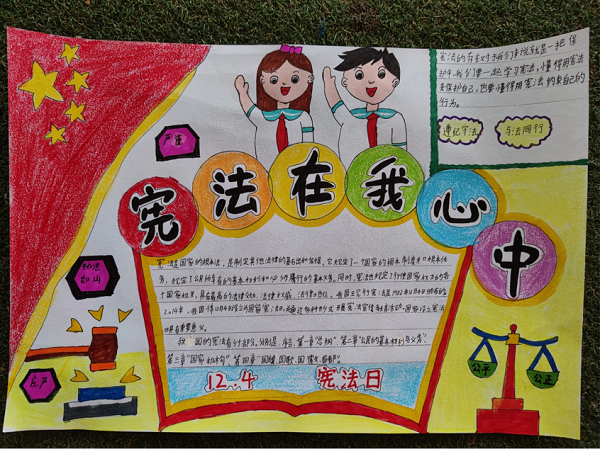 宪法在我心中
宪法的存在对于我们来说就是一把保
护伞,我们要一起学习宪法,懂得用宪法
来保护自己,也要懂得用宪法约束自己的
行为。
遵纪守法
与法同行
严重
执法
如山
庄严
宪法是国家的根本法,是制定其他法律的基础和依据,它规定了一个国家的根本制度和根本任
务,规定了公民享有的基本权利和必须履行的基本义务。同时,宪法也规定了行使国家权力的各
个国家机关,具有最高的法律效力、法律权威、法律地位。我国现行宪法是1982年12月4日
2014年
具有重要意义。
我国的宪法有5个部分,分别是:序言、第一章"总纲"、第二章"公民的基本权利与义务"、
第三章"国家机构"、第四章"国旗、国歌、国徽、首都"。
12.4 宪法日
公平
公正